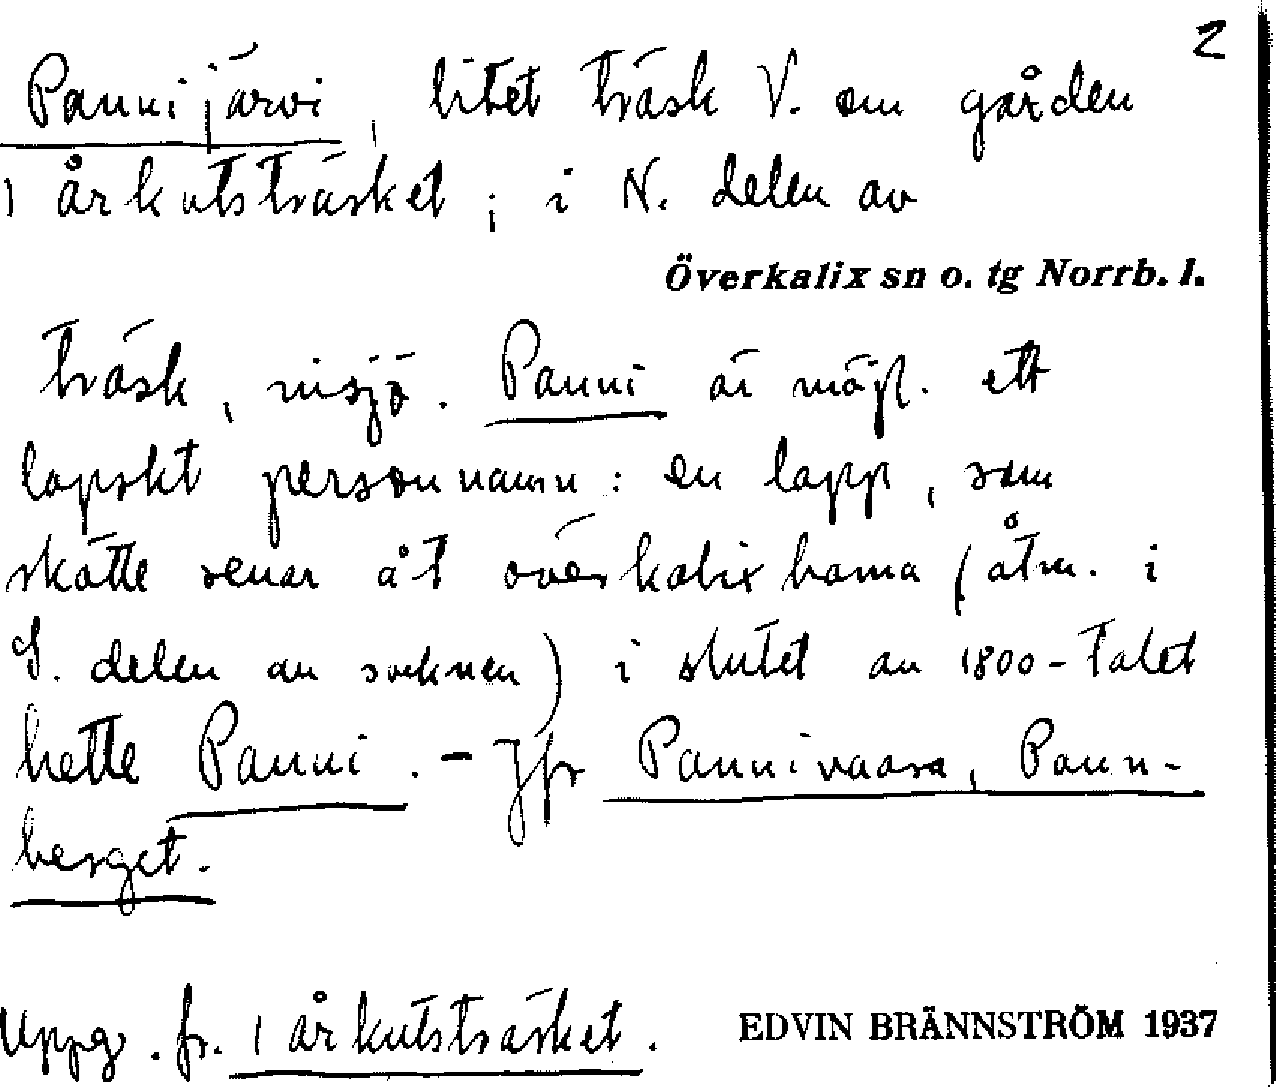 2
Pannijärvi, litet träsk V. om gården
1 årkutsträsket; i N. delen av
Överkalix sn o. tg Norrb. l.
träsk, insjö. Panni är möjl. ett
lapskt personnamn: en lapp, som
skötte renar åt överkalixborna (åtm. i
S. delen av socknen) i slutet av 1800-talet
hette Panni. - Jfr Pannivaara, Pann-
berget.
Uppg. fr. 1 årkutsträsket.
EDVIN BRÄNNSTRÖM 1937